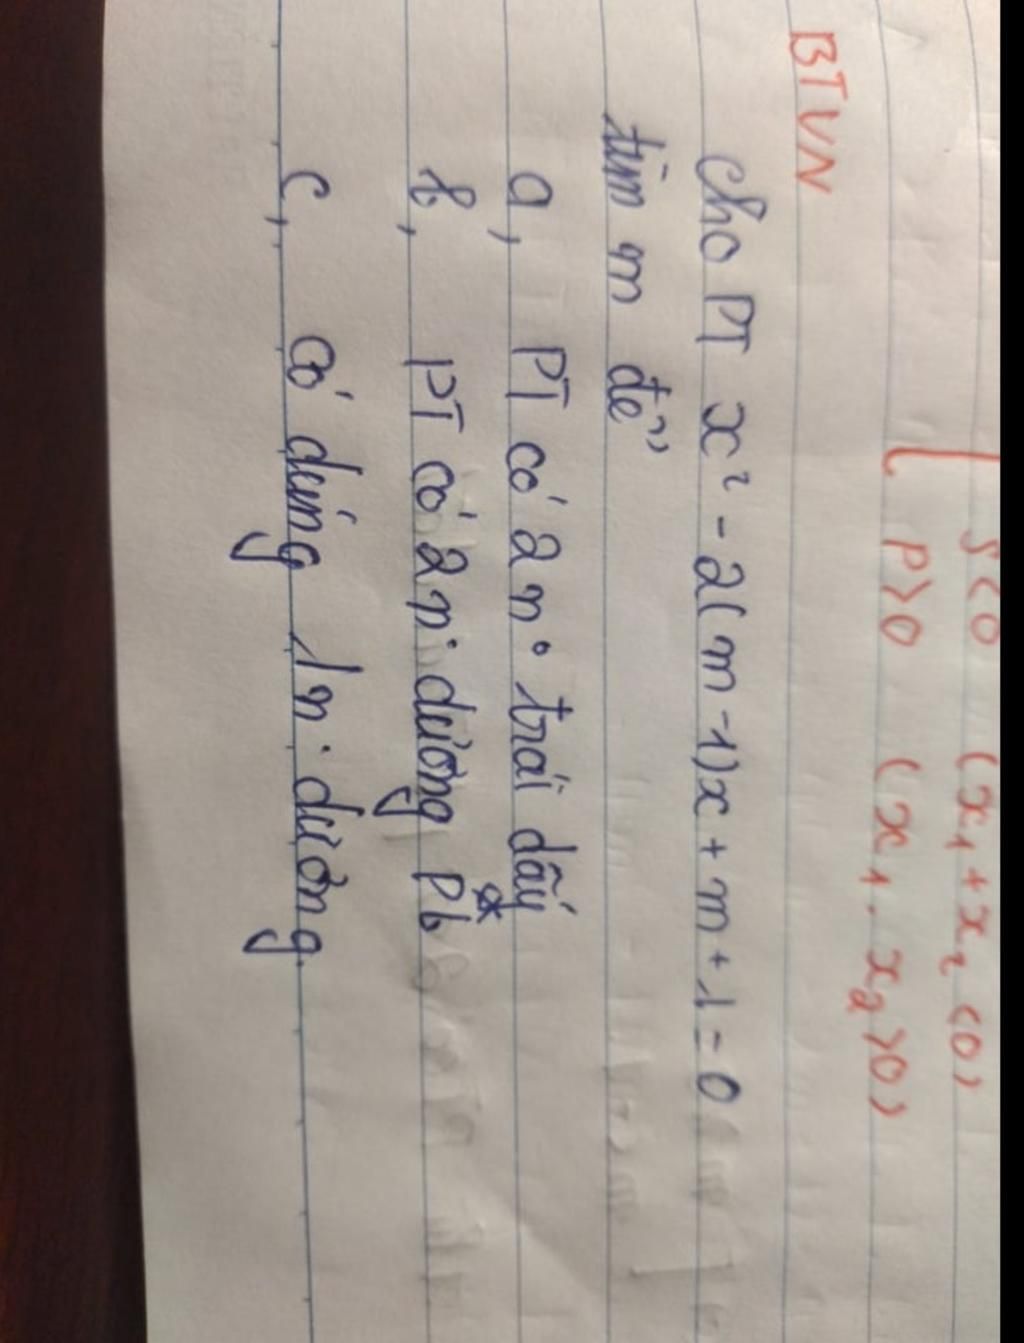 S < 0 (x₁ + x₂ < 0)
P > 0 (x₁ . x₂ > 0)
BTVN
Cho PT x² - 2(m - 1)x + m + 1 = 0
tìm m để
a, PT có 2 n⁰ trái dấu
b, PT có 2 n⁰ dương Pb
c, có đúng 1 n⁰ dương.